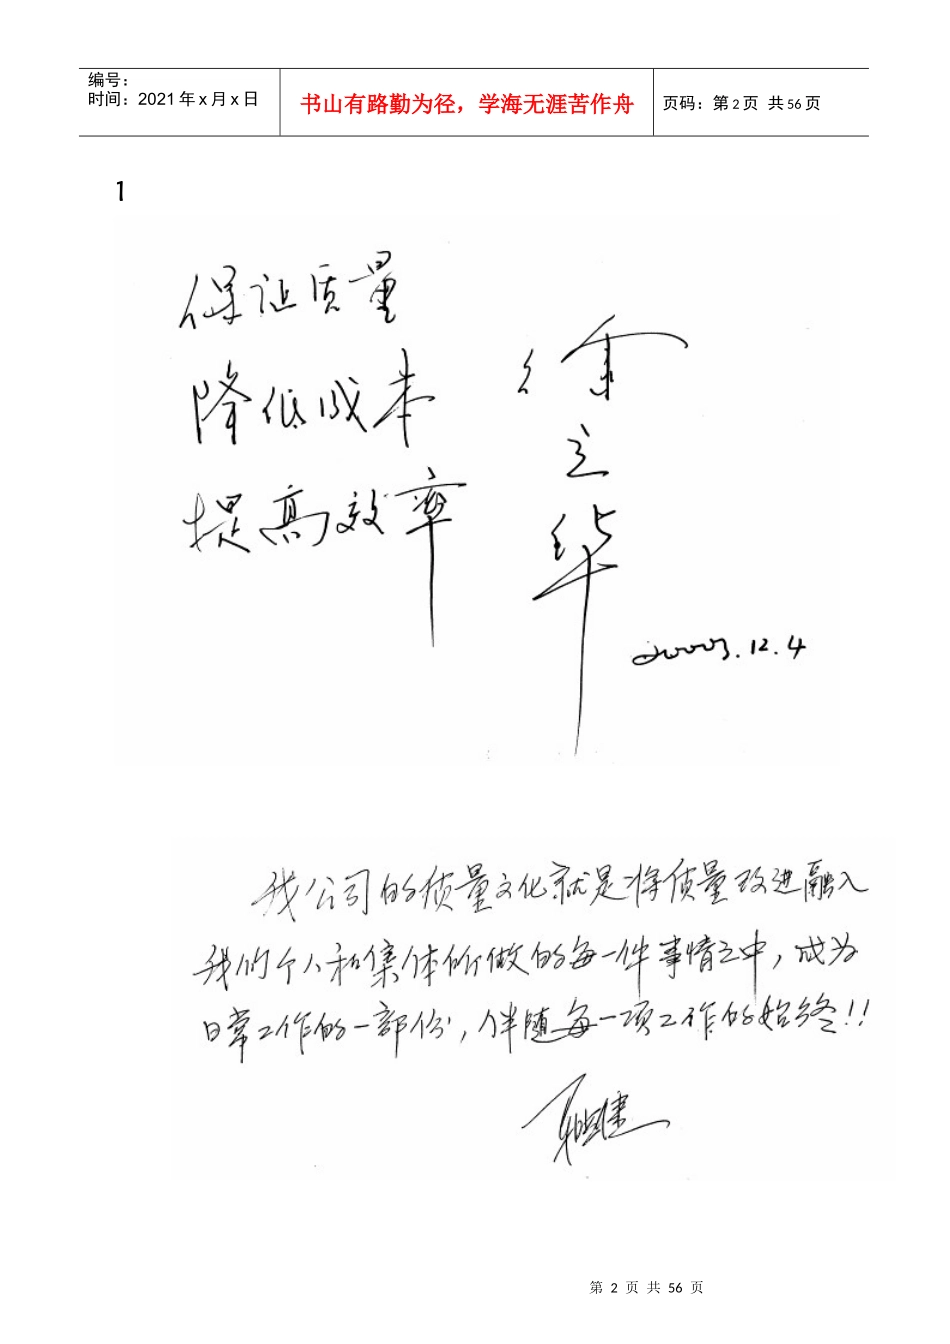 编号：
时间：2021年x月x日
书山有路勤为径，学海无涯苦作舟
页码：第2页 共56页
1
保证质量
降低成本
提高效率
徐立华
2003.12.4
我公司的质量文化就是将质量改进融入
我们个人和集体所做的每一件事情之中，成为
日常工作的一部份，伴随每一项工作的始终!!
第 2 页 共 56 页